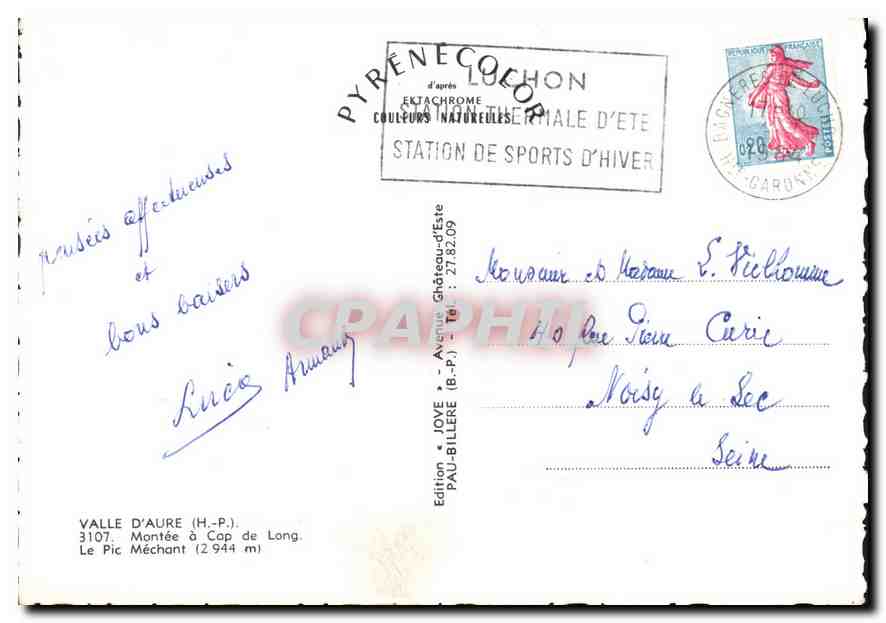 PYRÉNÉCOLOR
d'après
EKTACHROME
COULEURS NATURELLES
LUCHON
STATION THERMALE D'ETE
STATION DE SPORTS D'HIVER
REPUBLIQUE FRANÇAISE
0,20
POSTES
BAGNERES DE LUCHON
Hte-GARONNE
pensées affectueuses
et
bons baisers
Armand
Monsieur et Madame L. Vielhomme
40 Rue Pierre Curie
Noisy le Sec
Seine
Edition « JOVE » - Avenue Château-d'Este
PAU-BILLERE (B.-P.) - Tél. : 27.82.09
CPAPHIL
VALLE D'AURE (H.-P.).
3107. Montée à Cap de Long.
Le Pic Méchant (2 944 m)